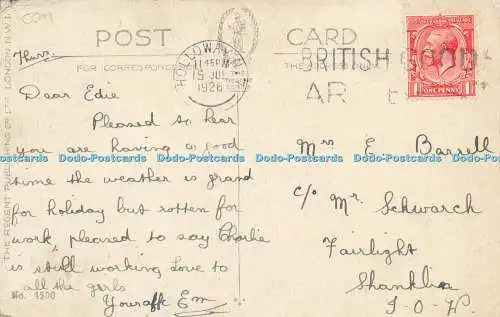 COM
POST CARD
FOR CORRESPONDENCE
HOLLOWAY
11 45PM
15 JU
1926
BRITISH GOODS
AR
ONE PENNY
Thurs.
Dear Edie
Pleased to hear
you are having a good
time the weather is grand
for holiday but rotten for
work, pleased to say Charlie
is still working Love to
all the girls
Your aff Em
Mrs E Barrell
c/o Mr Schwarch
Fairlight
Shanklin
I.O.W.
THE REGENT PUBLISHING Co LTD LONDON, N.W.1
No. 4500
Dodo-Postcards Dodo-Postcards Dodo-Postcards Dodo-Postcards Dodo-Postcards Dodo-Postcards Dodo-Postcards